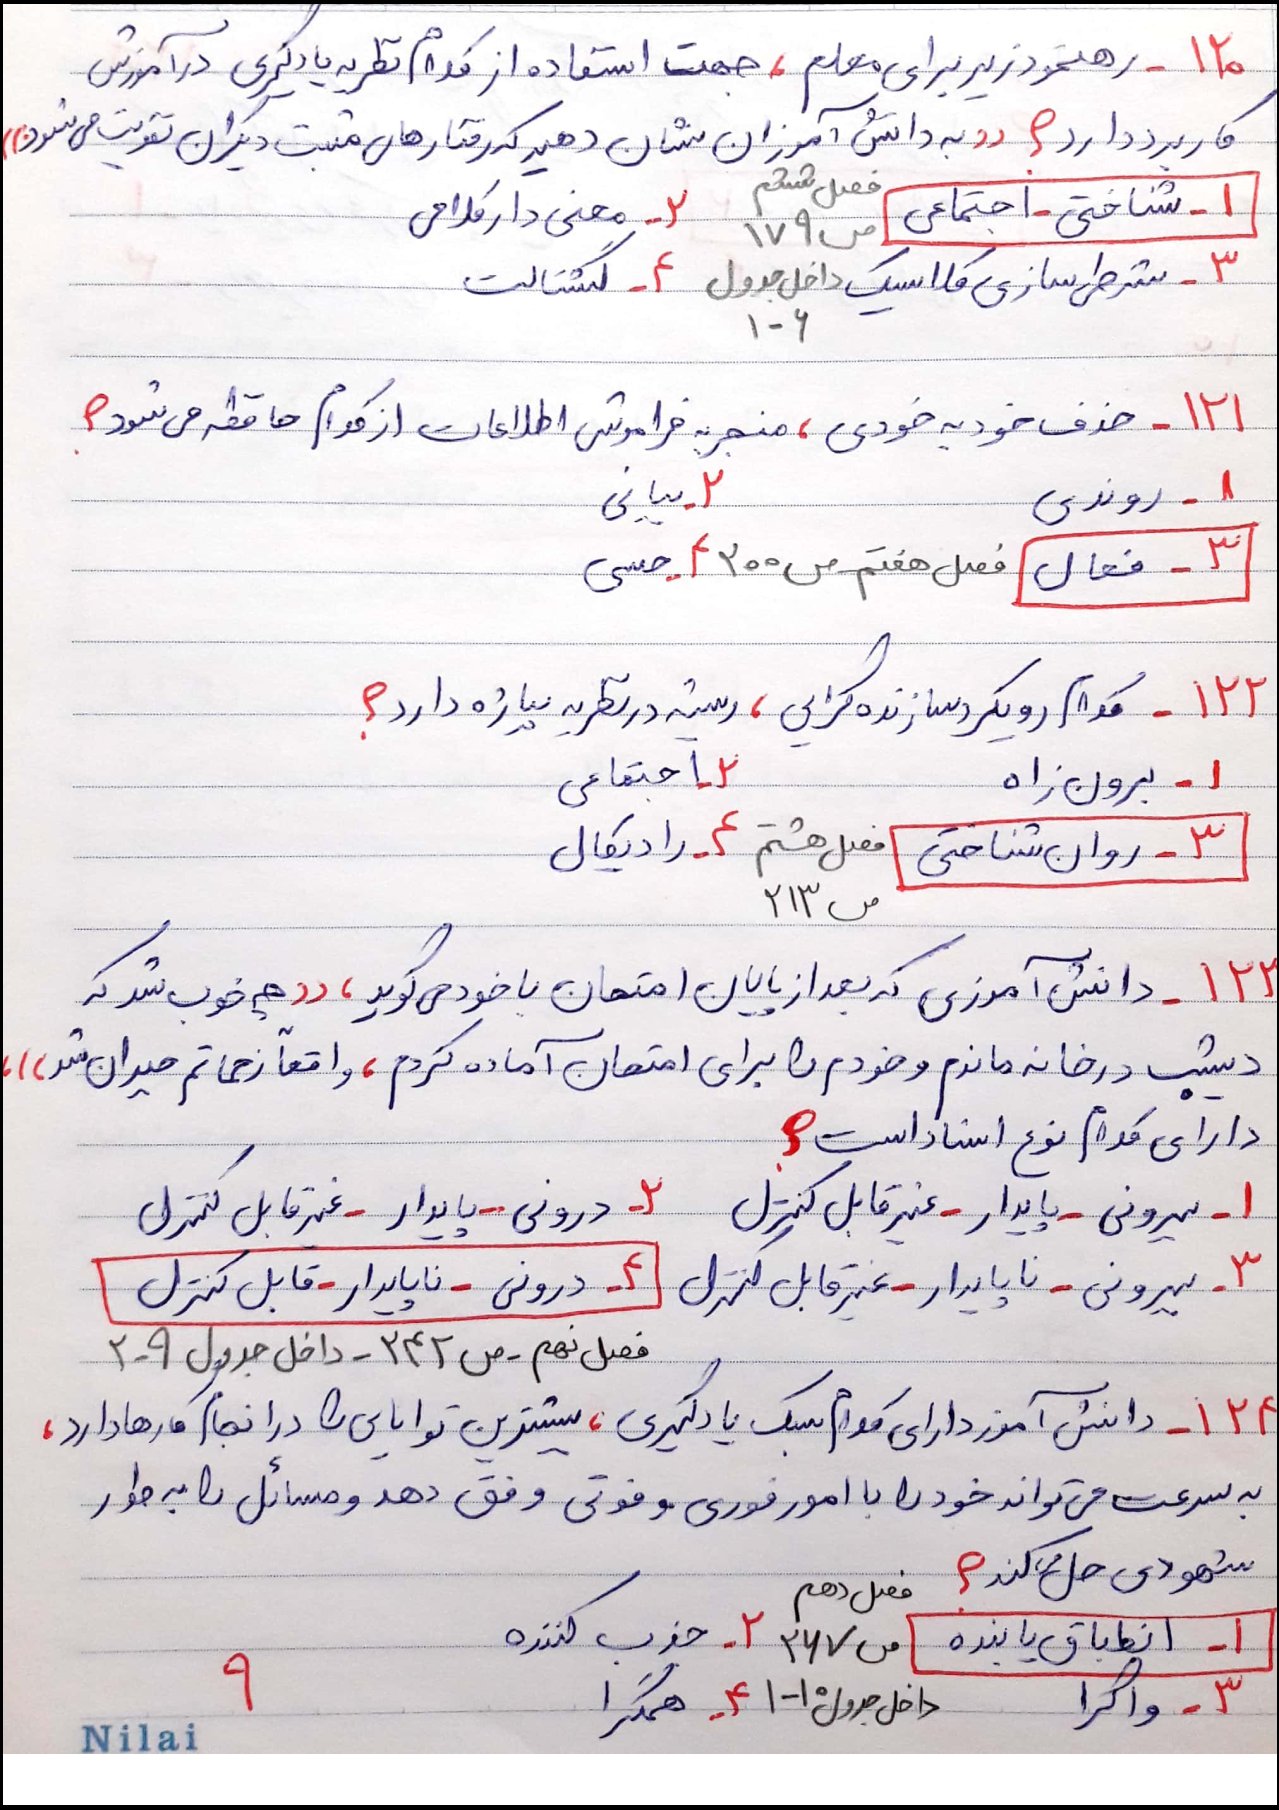 ۱۲۰ - رهنمود زیر برای معلم ، جهت استفاده از کدام نظریه یادگیری در آموزش
کاربرد دارد؟ «به دانش آموزان نشان دهید که رفتارهای مثبت دیگران تقویت می شود.»
۱- شناختی - اجتماعی فصل ششم ص ۱۷۹ ۲- معنی دار کلامی
۳- شرطی سازی کلاسیک داخل جدول ۶-۱ ۴- گشتالت
۱۲۱ - حذف خود به خودی ، منجر به فراموشی اطلاعات از کدام حافظه می شود؟
۱- روندی ۲- بیانی
۳- فعال فصل هفتم - ص ۲۰۰ ۴- حسی
۱۲۲ - کدام رویکرد سازنده گرایی ، ریشه در نظریه پیاژه دارد؟
۱- برون زاد ۲- اجتماعی
۳- روان شناختی فصل هشتم ص ۲۱۳ ۴- رادیکال
۱۲۳ - دانش آموزی که بعد از پایان امتحان با خود می گوید ، «چه خوب شد که
دیشب در خانه ماندم و خودم را برای امتحان آماده کردم ، واقعاً زحماتم جبران شد» ،
دارای کدام نوع اسناد است؟
۱- بیرونی - پایدار - غیرقابل کنترل ۲- درونی - پایدار - غیرقابل کنترل
۳- بیرونی - ناپایدار - غیرقابل کنترل ۴- درونی - ناپایدار - قابل کنترل
فصل نهم - ص ۲۴۲ - داخل جدول ۹-۲
۱۲۴ - دانش آموز دارای کدام سبک یادگیری ، بیشترین توانایی را در انجام کارها دارد ،
به سرعت می تواند خود را با امور فوری و فوتی وفق دهد و مسائل را به طور
شهودی حل می کند؟
۱- انطباق یابنده فصل دهم ص ۲۶۷ ۲- جذب کننده
۳- واگرا داخل جدول ۱۰-۱ ۴- همگرا
۹
Nilai